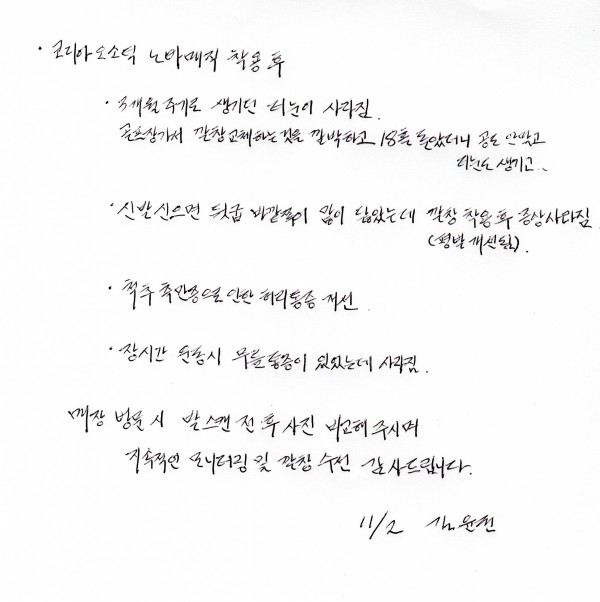 · 코리아오소틱 노바매직 착용 후
· 3개월 주기로 생기던 티눈이 사라짐.
골프장가서 깔창교체하는것을 깜박하고 18홀 돌았더니 공도 안맞고
티눈도 생기고..
· 신발신으면 뒤굽 바깥쪽이 많이 닳았는데 깔창 착용 후 증상사라짐
(평발 개선됨).
· 척추측만증으로 인한 허리통증 개선
· 장시간 운동시 무릎통증이 있었는데 사라짐.
매장 방문 시 발스캔 전 후 사진 비교해 주시며
지속적인 모니터링 및 깔창 수정 감사드립니다.
11/2